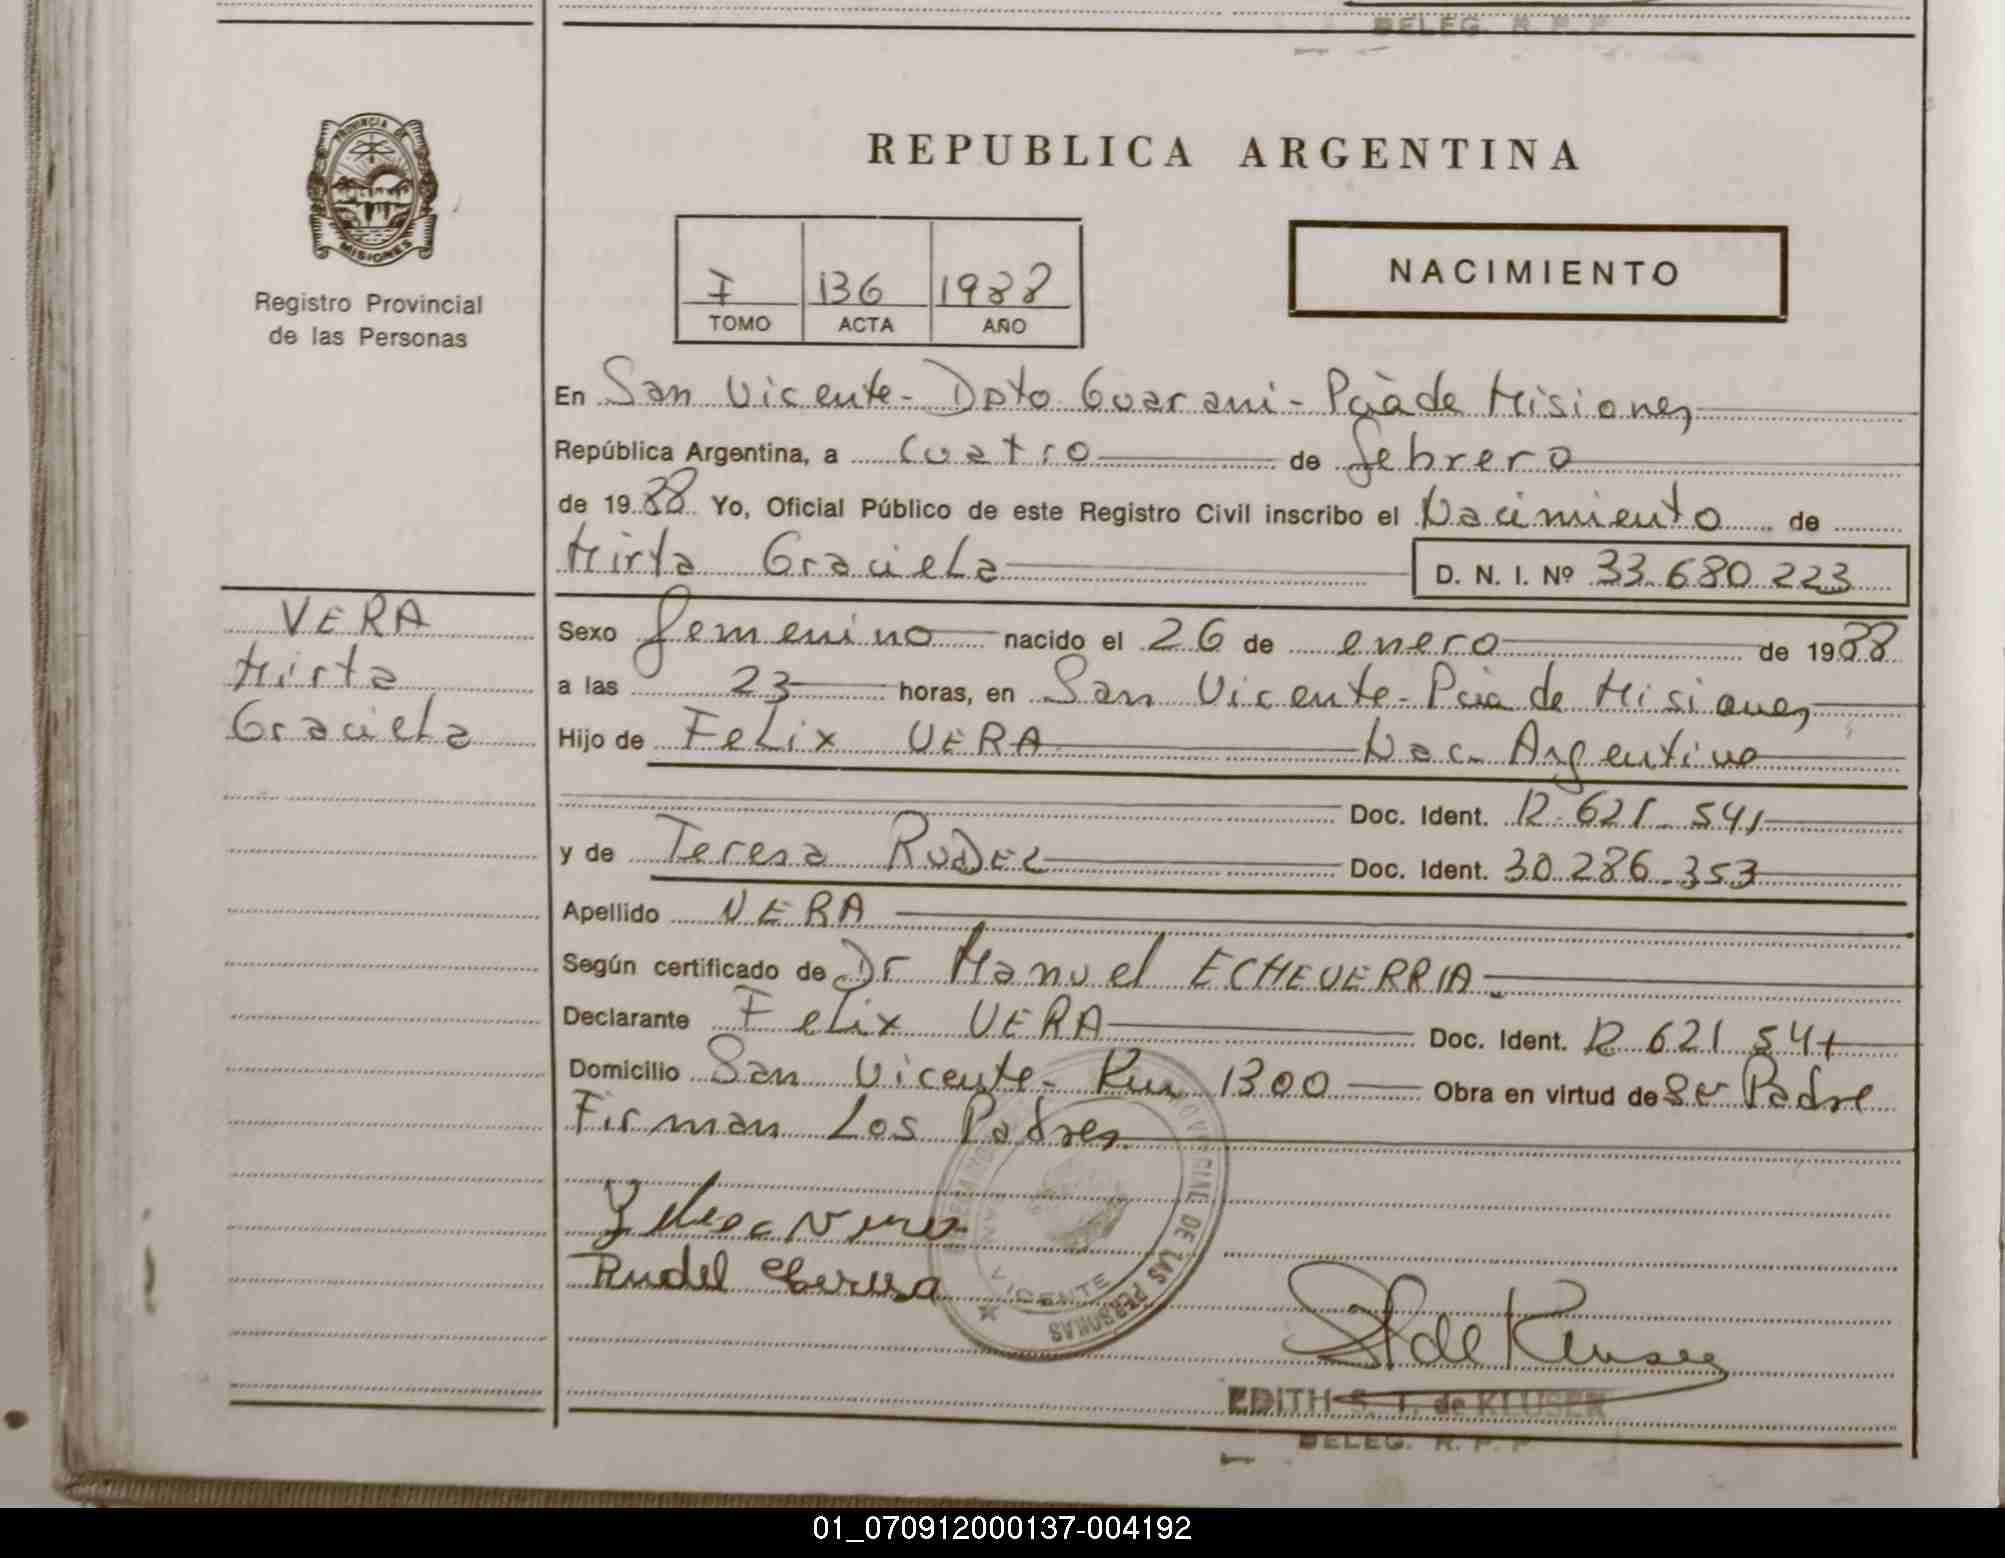 DELEG. R. P. P
PROVINCIA DE
MISIONES
Registro Provincial
de las Personas
REPUBLICA ARGENTINA
I 136 1988
TOMO ACTA AÑO
NACIMIENTO
En San Vicente - Dpto Guarani - Pcia de Misiones
República Argentina, a cuatro de febrero
de 1988 Yo, Oficial Público de este Registro Civil inscribo el Nacimiento de
Mirta Graciela D. N. I. Nº 33.680.223
VERA
Mirta
Graciela
Sexo femenino nacido el 26 de enero de 1988
a las 23 horas, en San Vicente - Pcia de Misiones
Hijo de Felix VERA Nac. Argentino
Doc. Ident. 12.621.541
y de Teresa RUDEL Doc. Ident. 30.286.353
Apellido VERA
Según certificado de Dr Manuel ECHEVERRIA
Declarante Felix VERA Doc. Ident. 12.621.541
Domicilio San Vicente - Km 1300 Obra en virtud de ser Padre
Firman Los Padres
Rudel Teresa
VICENTE
PROVINCIAL DE LAS PERSONAS
de Kluser
EDITH S. T. de KLUSER
DELEG. R. P. P
01_070912000137-004192